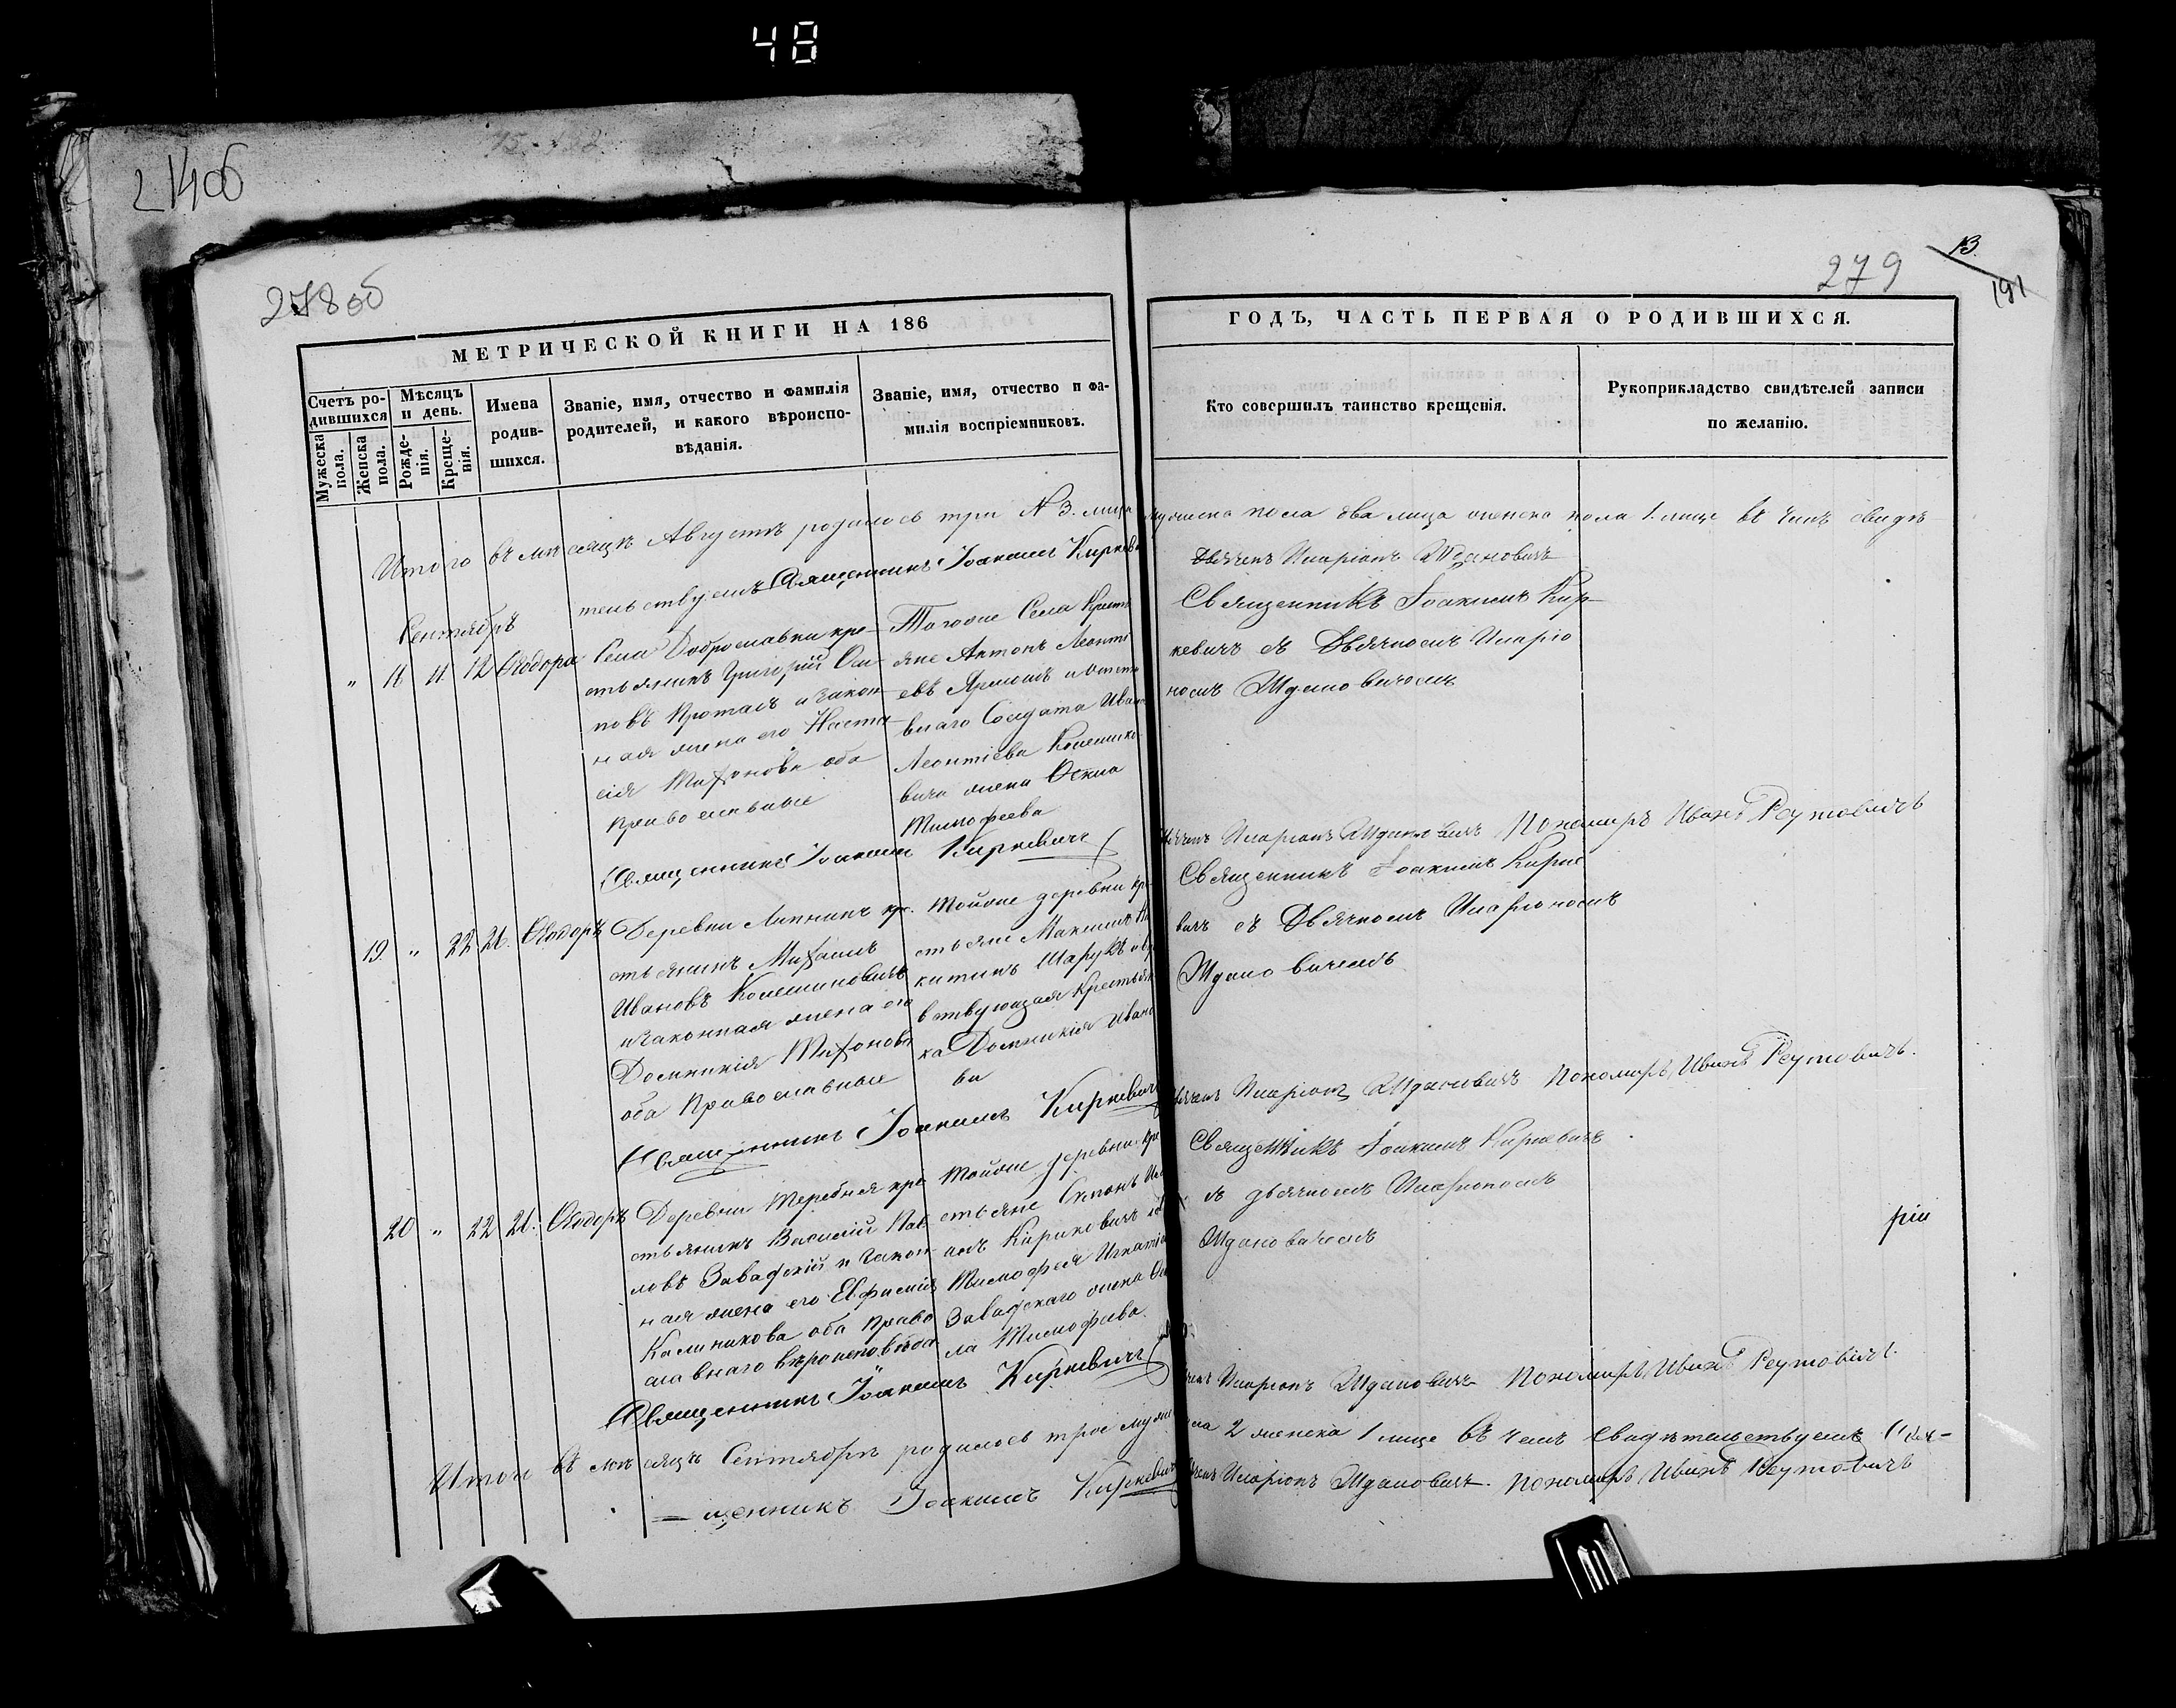 48
214об
278об
279
13
191
МЕТРИЧЕСКОЙ КНИГИ НА 186
ГОДЪ, ЧАСТЬ ПЕРВАЯ О РОДИВШИХСЯ.
Счетъ ро-
дившихся
Мужеска
пола.
Женска
пола.
Мѣсяцъ
и день.
Рожде-
нія.
Креще-
нія.
Имена
родив-
шихся.
Званіе, имя, отчество и фамилія
родителей, и какого вѣроиспо-
вѣданія.
Званіе, имя, отчество и фа-
милія воспріемниковъ.
Кто совершилъ таинство крещенія.
Рукоприкладство свидѣтелей записи
по желанію.
Итого въ мѣсяцѣ Августѣ родилось три № 3. лица мужеска пола два лица женска пола 1. лице въ чемъ свидѣ
тельствуемъ Священникъ Іоакимъ Киркев
Дьячекъ Иларіонъ Ждановичъ
Сентябрь
" 11 11 12 Ѳеодора
Села Доброславки кре-
стьянинъ Григорій Оси
повъ Протасъ и закон
ная жена его Наста
сія Тихонова оба
православные
Тогоже Села Кресть
яне Антонъ Леонті
евъ и
внаго Солдата Иван
Леонтіева
вича жена
Тимофеева
Священникъ Іоакимъ Кир-
кевичъ съ Дьячкомъ Иларіо
номъ Ждановичемъ
Священникъ Іоакимъ Киркевичъ
Дьячекъ Иларіонъ Ждановичъ Пономарь Иванъ Реутовичъ
19. " 22 26. Ѳеодоръ
Деревни кре.
стьянинъ Михаилъ
Ивановъ
и законная жена его
Домникія Тихонова
оба Православные
Тойже деревни кре
стьяне Максимъ Ни
китинъ и
вствующая Крестьян
ка Домникія Ивано
ва
Священникъ Іоакимъ Кирке
вичъ съ Дьячкомъ Иларіономъ
Ждановичемъ
Священникъ Іоакимъ Киркевичъ
Дьячекъ Иларіонъ Ждановичъ Пономарь Иванъ Реутовичъ.
20 " 22 26. Ѳеодоръ
Деревни Теребня кре
стьянинъ Василій Пав
ловъ Завадскій и закон
ная жена его Евфимія
Калиникова оба право
славнаго вѣроисповѣда
Тойже деревни кре
стьяне
Кириковичъ и
Тимофея Игнатіе
Завадскаго жена
Тимофеева.
Священникъ Іоакимъ Киркевичъ
съ дьячкомъ Иларіономъ
Ждановичемъ
рія
Священникъ Іоакимъ Киркевичъ
Дьячекъ Иларіонъ Ждановичъ Пономарь Иванъ Реутовичъ.
Итого въ мѣсяцѣ Сентябрѣ родилось трое муже ска 2 женска 1 лице въ чемъ свидѣтельствуемъ Свя-
щенникъ Іоакимъ Киркевичъ Дьячекъ Иларіонъ Ждановичъ. Пономарь Иванъ Реутовичъ